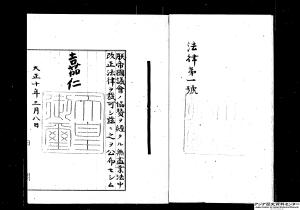 法律第一號
朕帝國議會ノ協賛ヲ經タル無盡業法中
改正法律ヲ裁可シ茲ニ之ヲ公布セシム
嘉仁
天皇
御璽
大正十年三月八日
アジア歴史資料センター